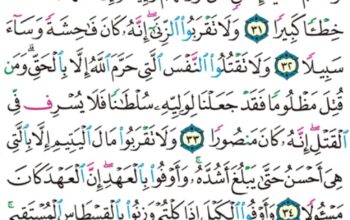 خِطْـًٔا كَبِيرًا ٣١ وَلَا تَقْرَبُوا۟ ٱلزِّنَىٰٓ إِنَّهُۥ كَانَ فَـٰحِشَةً وَسَآءَ
سَبِيلًا ٣٢ وَلَا تَقْتُلُوا۟ ٱلنَّفْسَ ٱلَّتِى حَرَّمَ ٱللَّهُ إِلَّا بِٱلْحَقِّ ۗ وَمَن
قُتِلَ مَظْلُومًا فَقَدْ جَعَلْنَا لِوَلِيِّهِۦ سُلْطَـٰنًا فَلَا يُسْرِف فِّى
ٱلْقَتْلِ ۖ إِنَّهُۥ كَانَ مَنصُورًا ٣٣ وَلَا تَقْرَبُوا۟ مَالَ ٱلْيَتِيمِ إِلَّا بِٱلَّتِى
هِىَ أَحْسَنُ حَتَّىٰ يَبْلُغَ أَشُدَّهُۥ ۚ وَأَوْفُوا۟ بِٱلْعَهْدِ ۖ إِنَّ ٱلْعَهْدَ كَانَ
مَسْـُٔولًا ٣٤ وَأَوْفُوا۟ ٱلْكَيْلَ إِذَا كِلْتُمْ وَزِنُوا۟ بِٱلْقِسْطَاسِ ٱلْمُسْتَقِيمِ ۚ